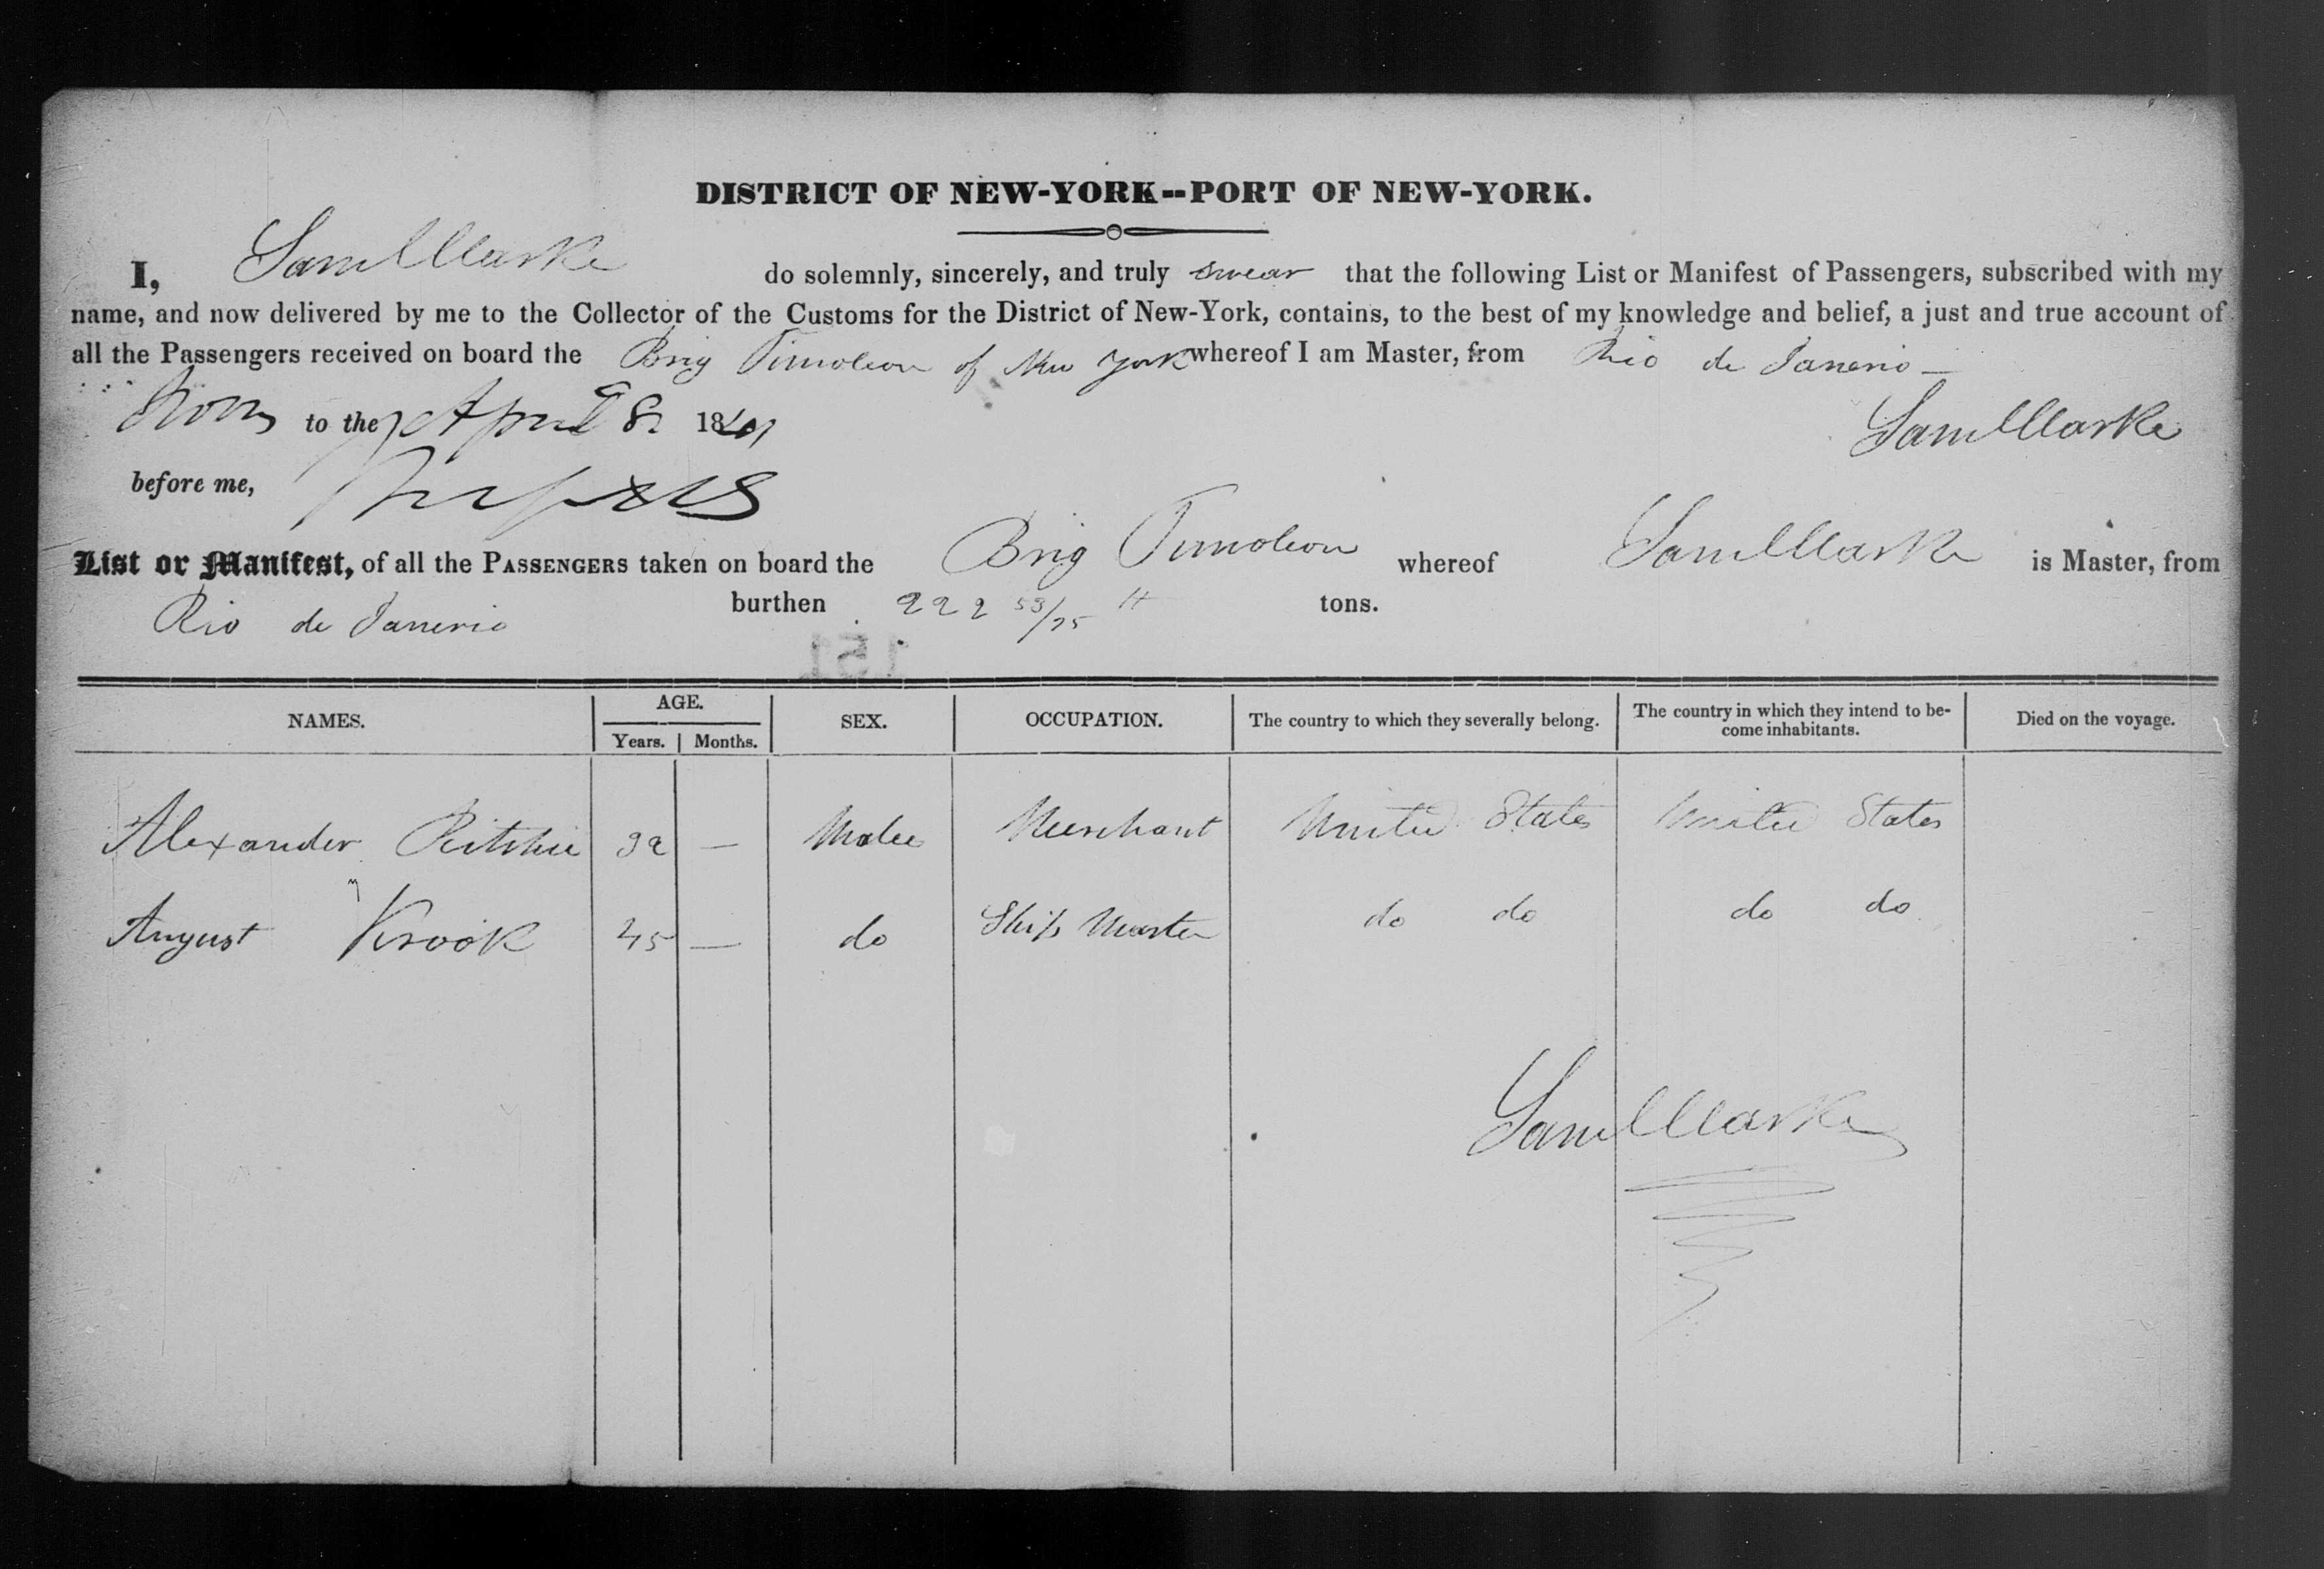 DISTRICT OF NEW-YORK--PORT OF NEW-YORK.
I, Saml Clarke do solemnly, sincerely, and truly swear that the following List or Manifest of Passengers, subscribed with my
name, and now delivered by me to the Collector of the Customs for the District of New-York, contains, to the best of my knowledge and belief, a just and true account of
all the Passengers received on board the Brig Timoleon of New York whereof I am Master, from Rio de Janerio
Sworn to the April 8. 1841 Saml Clarke
before me,
List or Manifest, of all the PASSENGERS taken on board the Brig Timoleon whereof Saml Clarke is Master, from
Rio de Janerio burthen 222 53/95 tons.
151
NAMES. AGE. Years. Months. SEX. OCCUPATION. The country to which they severally belong. The country in which they intend to become inhabitants. Died on the voyage.
Alexander Ritchie 32 — Male Merchant United States United States
August Krook 45 — do Ship Master do do do do
Saml Clarke